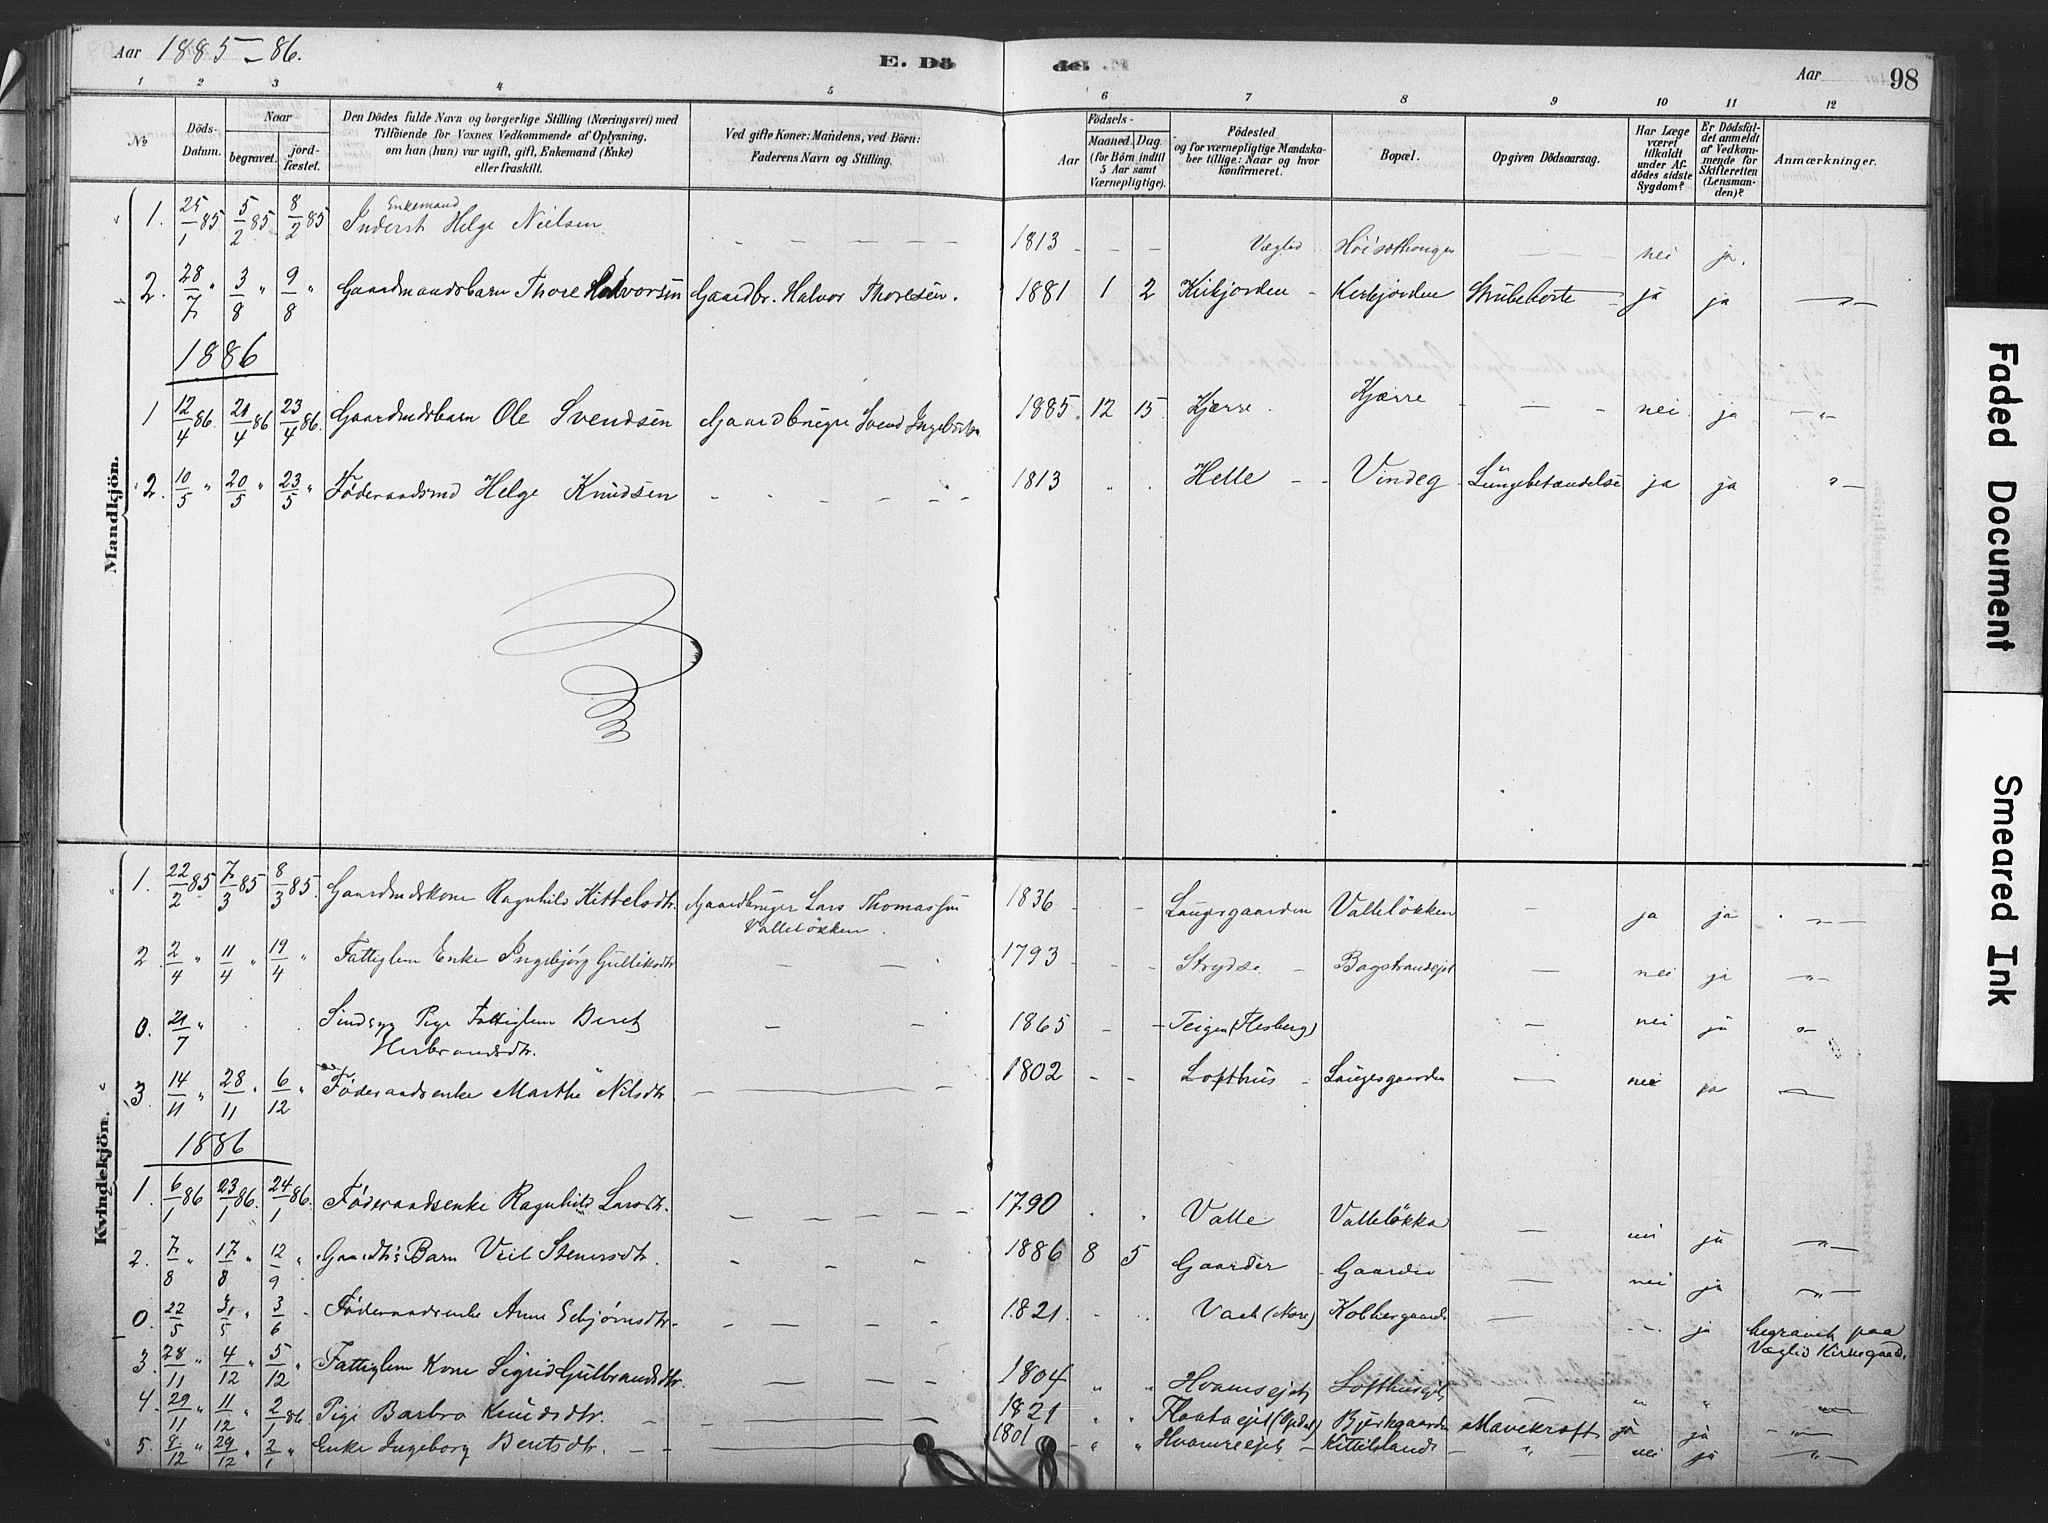 Aar 1885-86.
E. Dö
de.
Aar
98
1 2 3 4 5 6 7 8 9 10 11 12
No
Döds-
Datum.
Naar
begravet.
jord-
fæstet.
Den Dödes fulde Navn og borgerlige Stilling (Næringsvei) med
Tilföiende for Voxnes Vedkommende af Oplysning,
om han (hun) var ugift, gift, Enkemand (Enke)
eller fraskilt.
Ved gifte Koner: Mandens, ved Börn:
Faderens Navn og Stilling.
Födsels-
Aar
Maaned. Dag.
(for Börn indtil
5 Aar samt
Værnepligtige).
Födested
og for værnepligtige Mandska-
ber tillige: Naar og hvor
konfirmeret.
Bopæl.
Opgiven Dödsaarsag.
Har Læge
været
tilkaldt
under Af-
dödes sidste
Sygdom?
Er Dödsfal-
det anmeldt
af Vedkom-
mende for
Skifteretten
(Lensman-
den)?
Anmærkninger.
Mandkjön.
Enkemand
1. 25/1 85 5/2 85 8/2 85 Inderst Helge Nielsen - - - - - 1813 - - - Vægtid nei ja.
2. 28/7 " 3/8 " 9/8 " Gaardmandsbarn Thore Halvorsen Gaardbr. Halvor Thoresen. 1881 1 2 Kirkjorden Kirkjorden Strubehoste ja ja -"-
1886
1 12/4 86. 21/4 86 23/4 86. Gaardmdsbarn Ole Svendsen Gaardbruger Svend 1885. 12 15. Kjærre. Kjærre - - - nei ja -"-
2. 10/5 " 20/5 " 23/5 " Föderaadsmd Helge Knudsen - - - - - 1813 " . Helle - - Vindeg Lungebetændelse ja ja "-
Kvindekjön.
1. 22/2 85 7/3 85 8/3 85 Gaardmdskone Ragnhild Kittelsdtr. Gaardbruger Lars Thomassen 1836 - - - Laugesgaarden Valleløkken - ja ja -"-
Valleløkken.
2 2/4 " 11/4 " 19/4 " Fattiglem Enke Ingebjørg Gulliksdtr - - 1793 - - - Strydse - - nei ja "-
0. 21/7 " . . Sindsyg Pige Fattiglem Beret - - 1865 - - - Teigen (Flesberg) - nei ja "-
Herbrandsdtr.
3. 14/11 " 28/11 " 6/12 " Föderaadsenke Marthe Nilsdtr - 1802 - - Lofthus - Laugesgaarden - nei ja -"-
1886
1. 6/1 86 23/1 86. 24/1 86. Föderaadsenke Ragnhild Larsdtr. - - - - - 1790 . . Valle Valleløkka - nei ja -"-
2. 7/8 " 17/8 " 12/9 " Barn Veil Stenersdtr. - - - 1886 8 5 Gaarder - Gaarder - nei ja -"-
0. 22/5 " 31/5 " 3/6 " Föderaadsenke Anne - - - - 1821. . . (Nore) - - ja begravet paa
Væglid Kirkegaard.
3. 28/11 " 4/12 " 5/12 " Fattiglem Kone Sigrid Gulbrandsdtr. - - - - 1804 " " Hvamsejet Lofthusejet " "
4. 29/11 " 11/12 " 2/1 86. Pige Barbro Knudsdtr. - - 1821 " " (Opdal) Bjerkgaarden Mavekræft ja ja -"-
5. 8/12 " 29/12 " 2/1 " Enke Ingeborg Berntsdtr. - - 1801 - " " - Kittilsland - " nei ja -"-
Faded Document
Smeared Ink